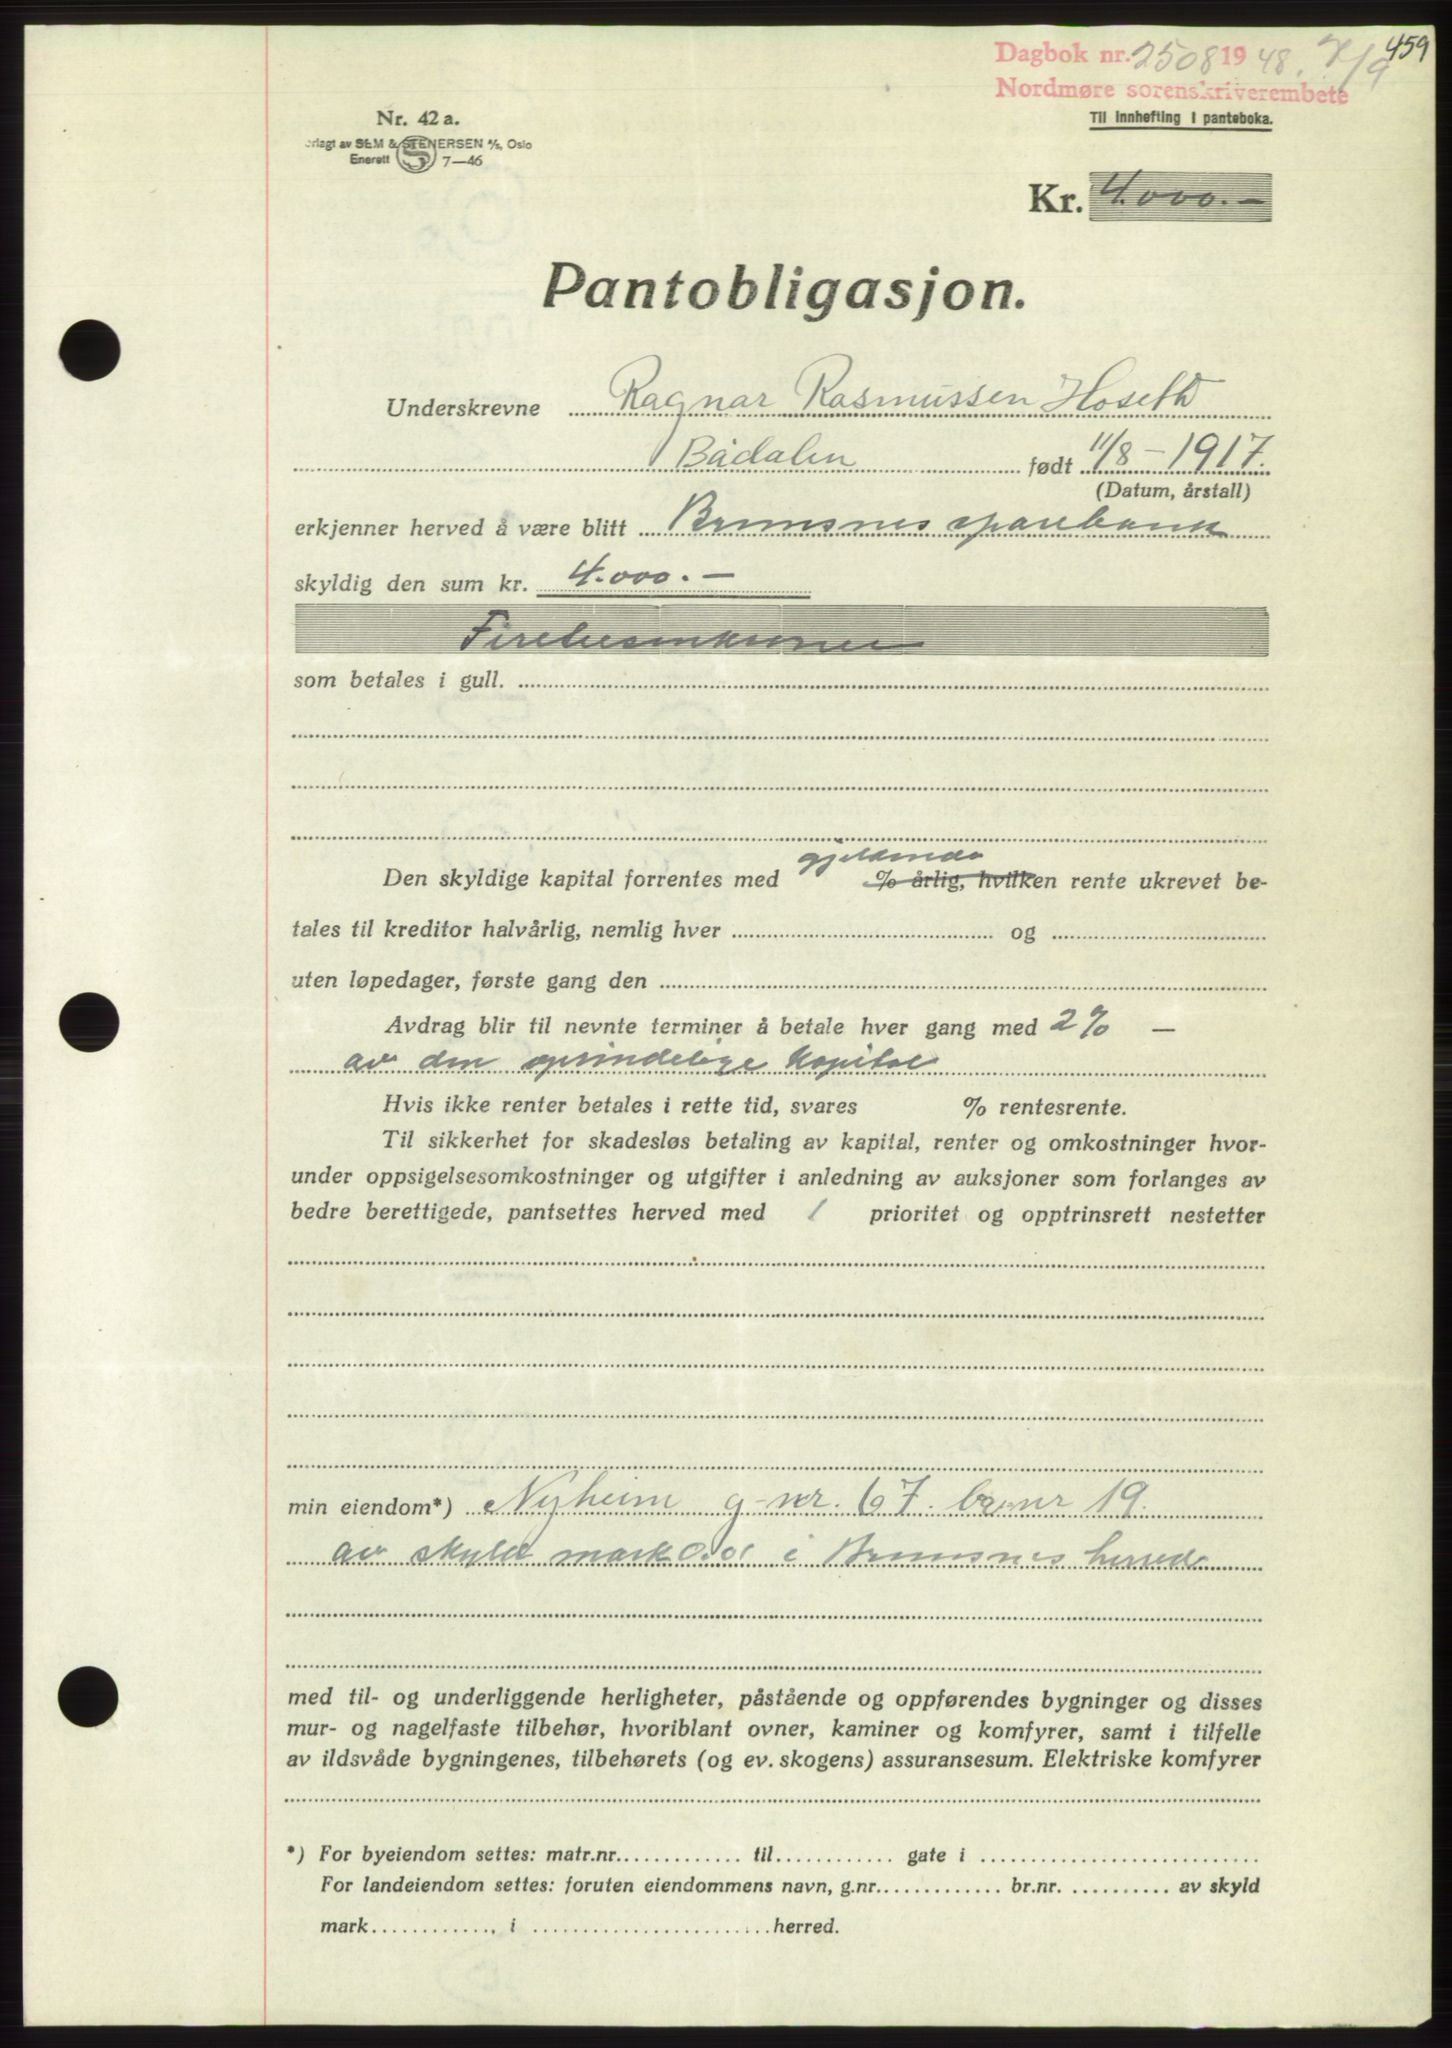 459
Dagbok nr. 2508 19 48. 7/9
Nordmøre sorenskriverembete
Til innhefting i panteboka.
Nr. 42 a.
erlagt av SEM & STENERSEN A/S, Oslo
Enerett S 7—46
Kr. 4.000.—
Pantobligasjon.
Underskrevne Ragnar Rasmussen Hoseth
Bådalen født 11/8 – 1917.
(Datum, årstall)
erkjenner herved å være blitt Brunsnes sparebank
skyldig den sum kr. 4.000.—
Firetusenkroner
som betales i gull.
gjeldende
Den skyldige kapital forrentes med % årlig, hvilken rente ukrevet be-
tales til kreditor halvårlig, nemlig hver og
uten løpedager, første gang den
Avdrag blir til nevnte terminer å betale hver gang med 2% —
av den oprindelige kapital
Hvis ikke renter betales i rette tid, svares % rentesrente.
Til sikkerhet for skadesløs betaling av kapital, renter og omkostninger hvor-
under oppsigelsesomkostninger og utgifter i anledning av auksjoner som forlanges av
bedre berettigede, pantsettes herved med 1 prioritet og opptrinsrett nestetter
min eiendom*) Nyheim g-nr. 67. br.nr 19.
av skyld mark 0.01 i Brunsnes herred
med til- og underliggende herligheter, påstående og oppførendes bygninger og disses
mur- og nagelfaste tilbehør, hvoriblant ovner, kaminer og komfyrer, samt i tilfelle
av ildsvåde bygningenes, tilbehørets (og ev. skogens) assuransesum. Elektriske komfyrer
*) For byeiendom settes: matr.nr. til gate i
For landeiendom settes: foruten eiendommens navn, g.nr. br.nr. av skyld
mark , i herred.